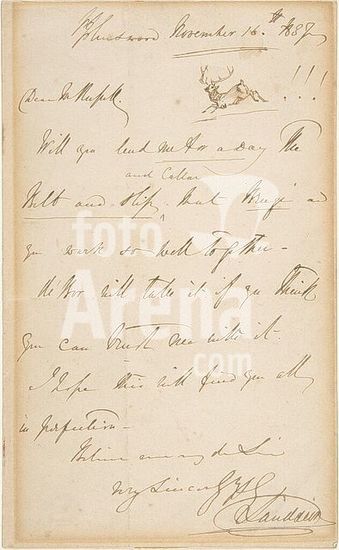 November 16th 1857
!!!
Dear Mr Russell.
Will you lend me for a day the
and Collar
Belt and Slip, that and
you work so well together -
the Bor will take it if you think
you can trust me with it.
I hope this will find you all
in perfection -
Believe me my dear Sir
Very Sincerely
E Landseer
foto
Arena
.com